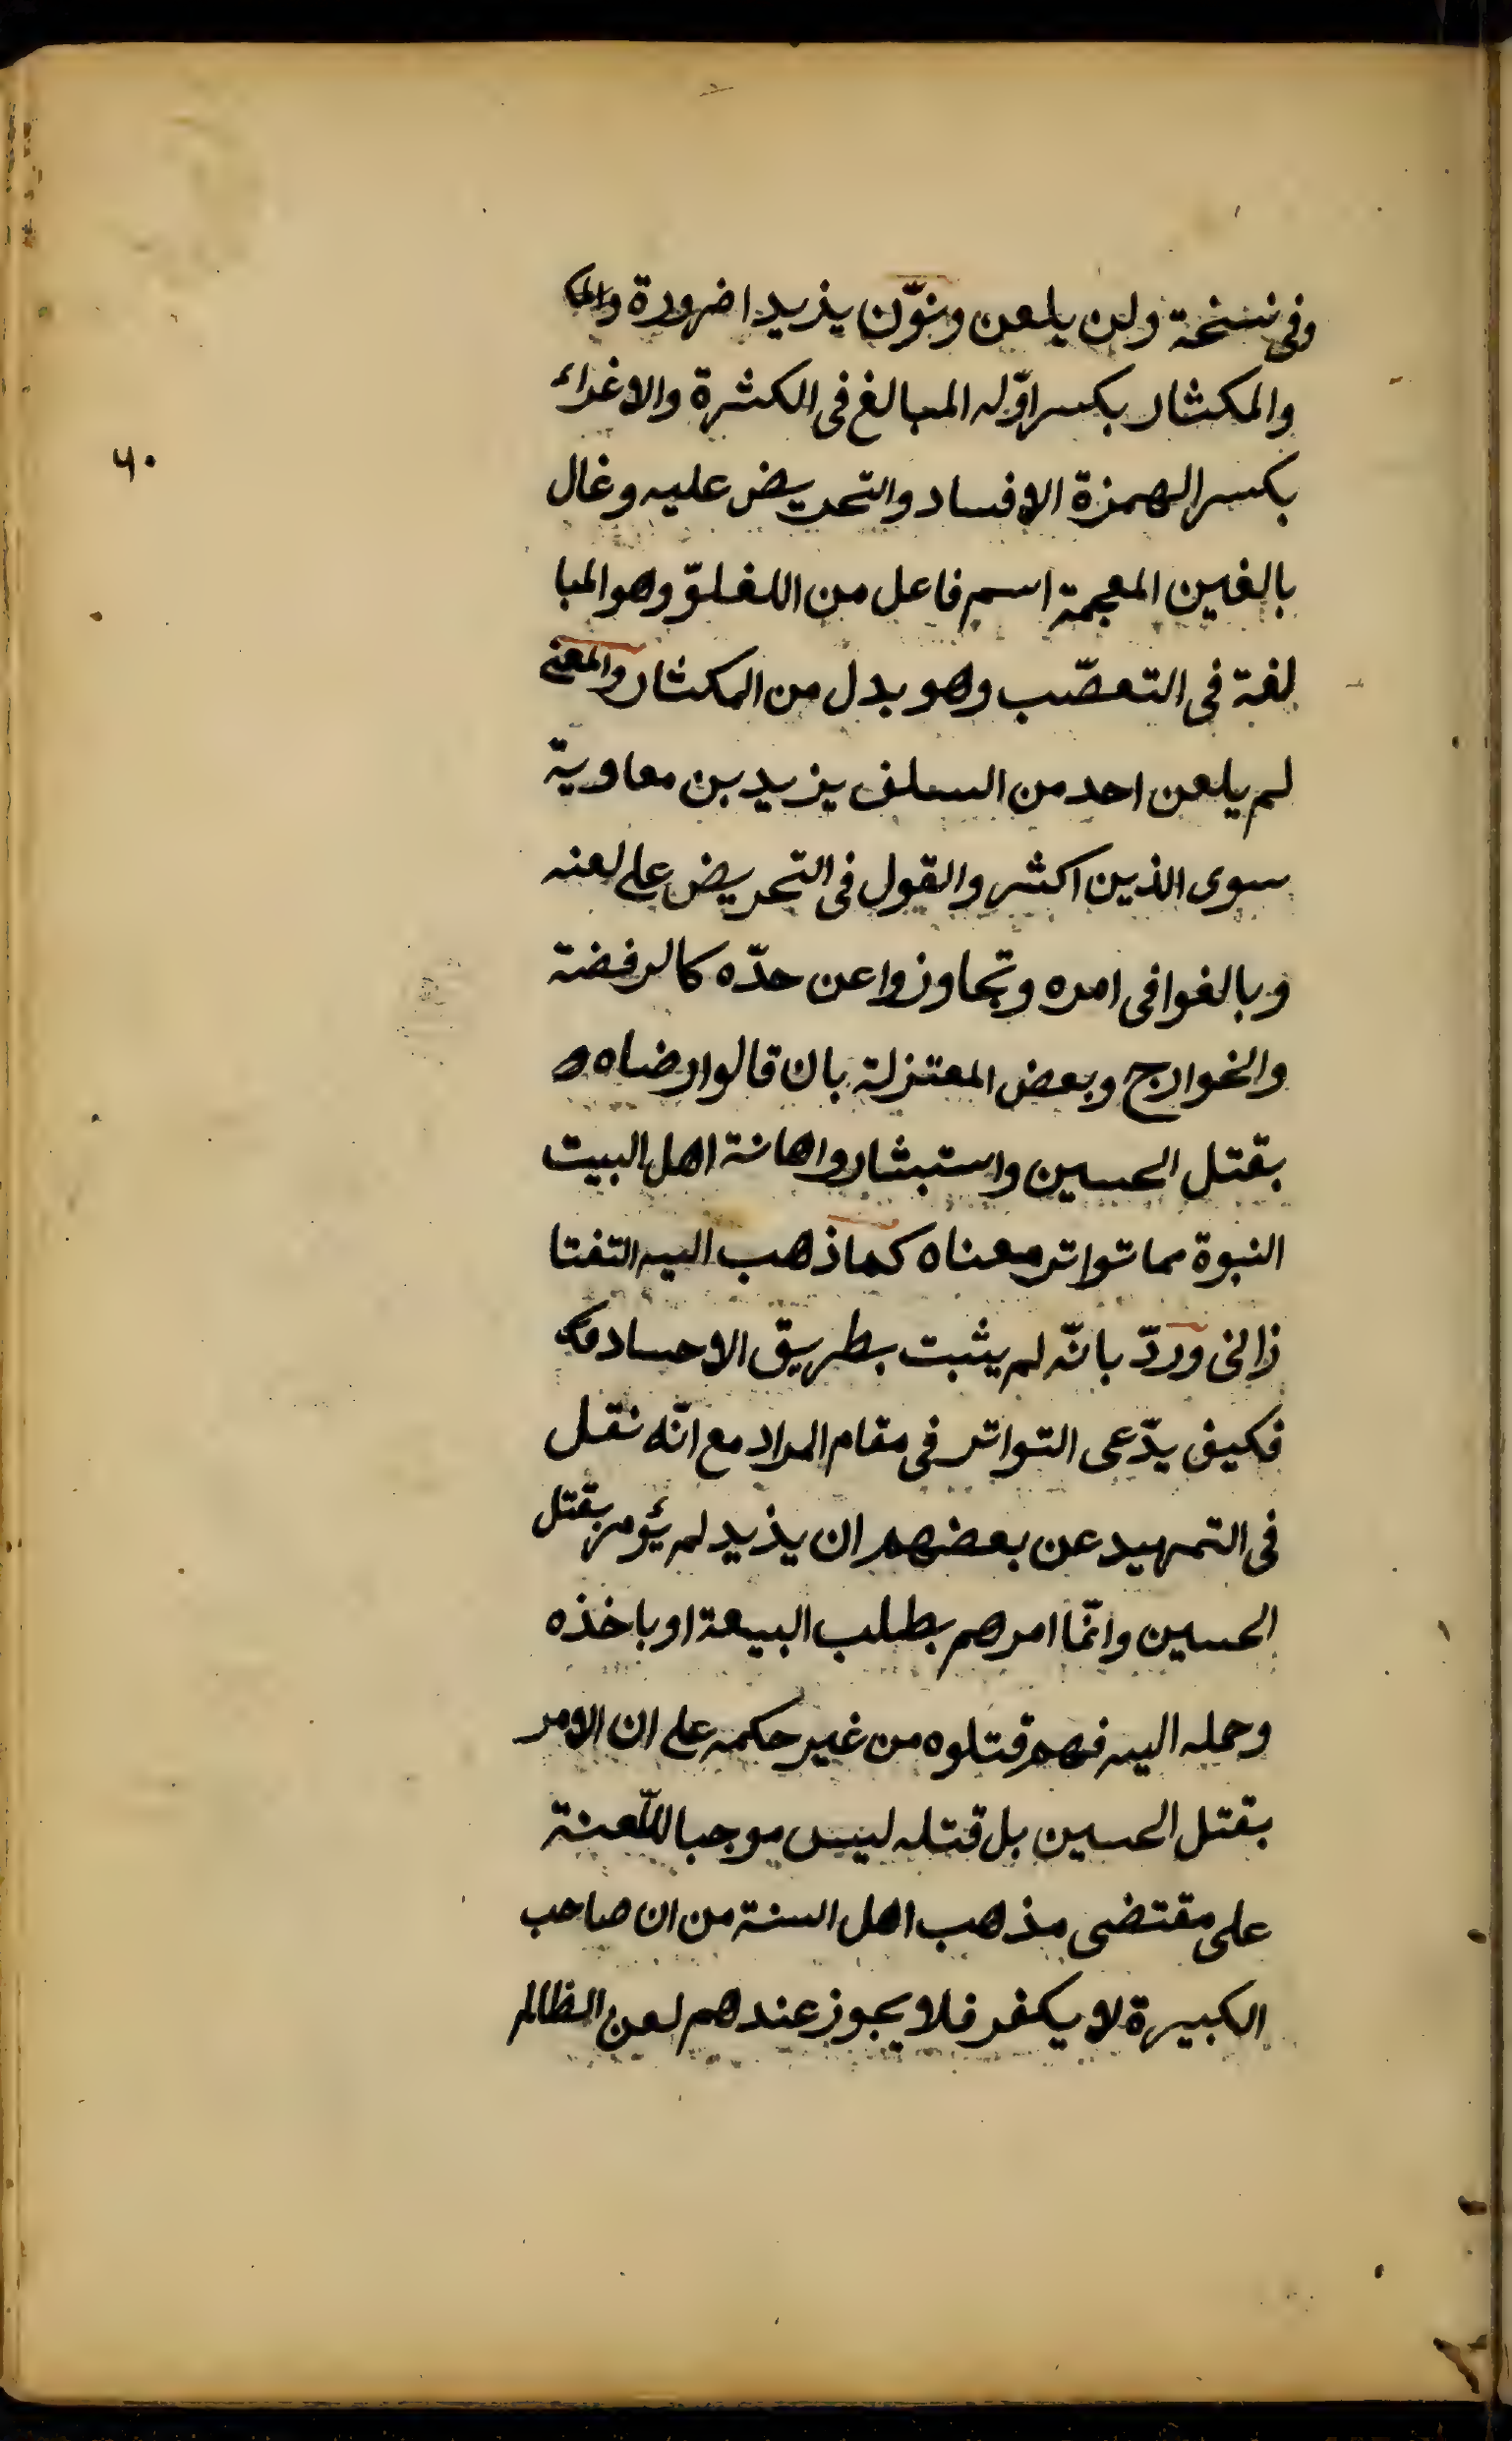 وفى نسخة ولن يلعن ونوّن يذيد اضرورة والمك
والمكثار بكسر اوّله المبالغ فى الكثرة والاغراء
٦٠
بكسر الهمزة الافساد والتحريض عليه وغال
بالغين المعجمة اسم فاعل من اللغلوّ وهو المبا
لغة فى التعصّب وهو بدل من المكثار والمعنى
لم يلعن احد من السلف يزيد بن معاوية
سوى الذين اكثر والقول فى التحريض على لعنه
وبالغوا فى امره وتجاوزوا عن حدّه كالرفضة
والخوارج وبعض المعتزلة بان قالوا رضاه
بقتل الحسين واستبشار واهانة اهل البيت
النبوة مما تواتر معناه كما ذهب اليه التفتا
زانى وردّ بانّه لم يثبت بطريق الاحساد
فكيف يدّعى التواتر فى مقام المراد مع انّه نقل
فى التمهيد عن بعضهم ان يذيد لم يؤمر بقتل
الحسين وانّما امرهم بطلب البيعة او باخذه
وحمله اليه فهم قتلوه من غير حكمه على ان الامر
بقتل الحسين بل قتله ليس موجبا للّعنة
على مقتضى مذهب اهل السنة من ان صاحب
الكبيرة لا يكفر فلا يجوز عندهم لعن الظالم